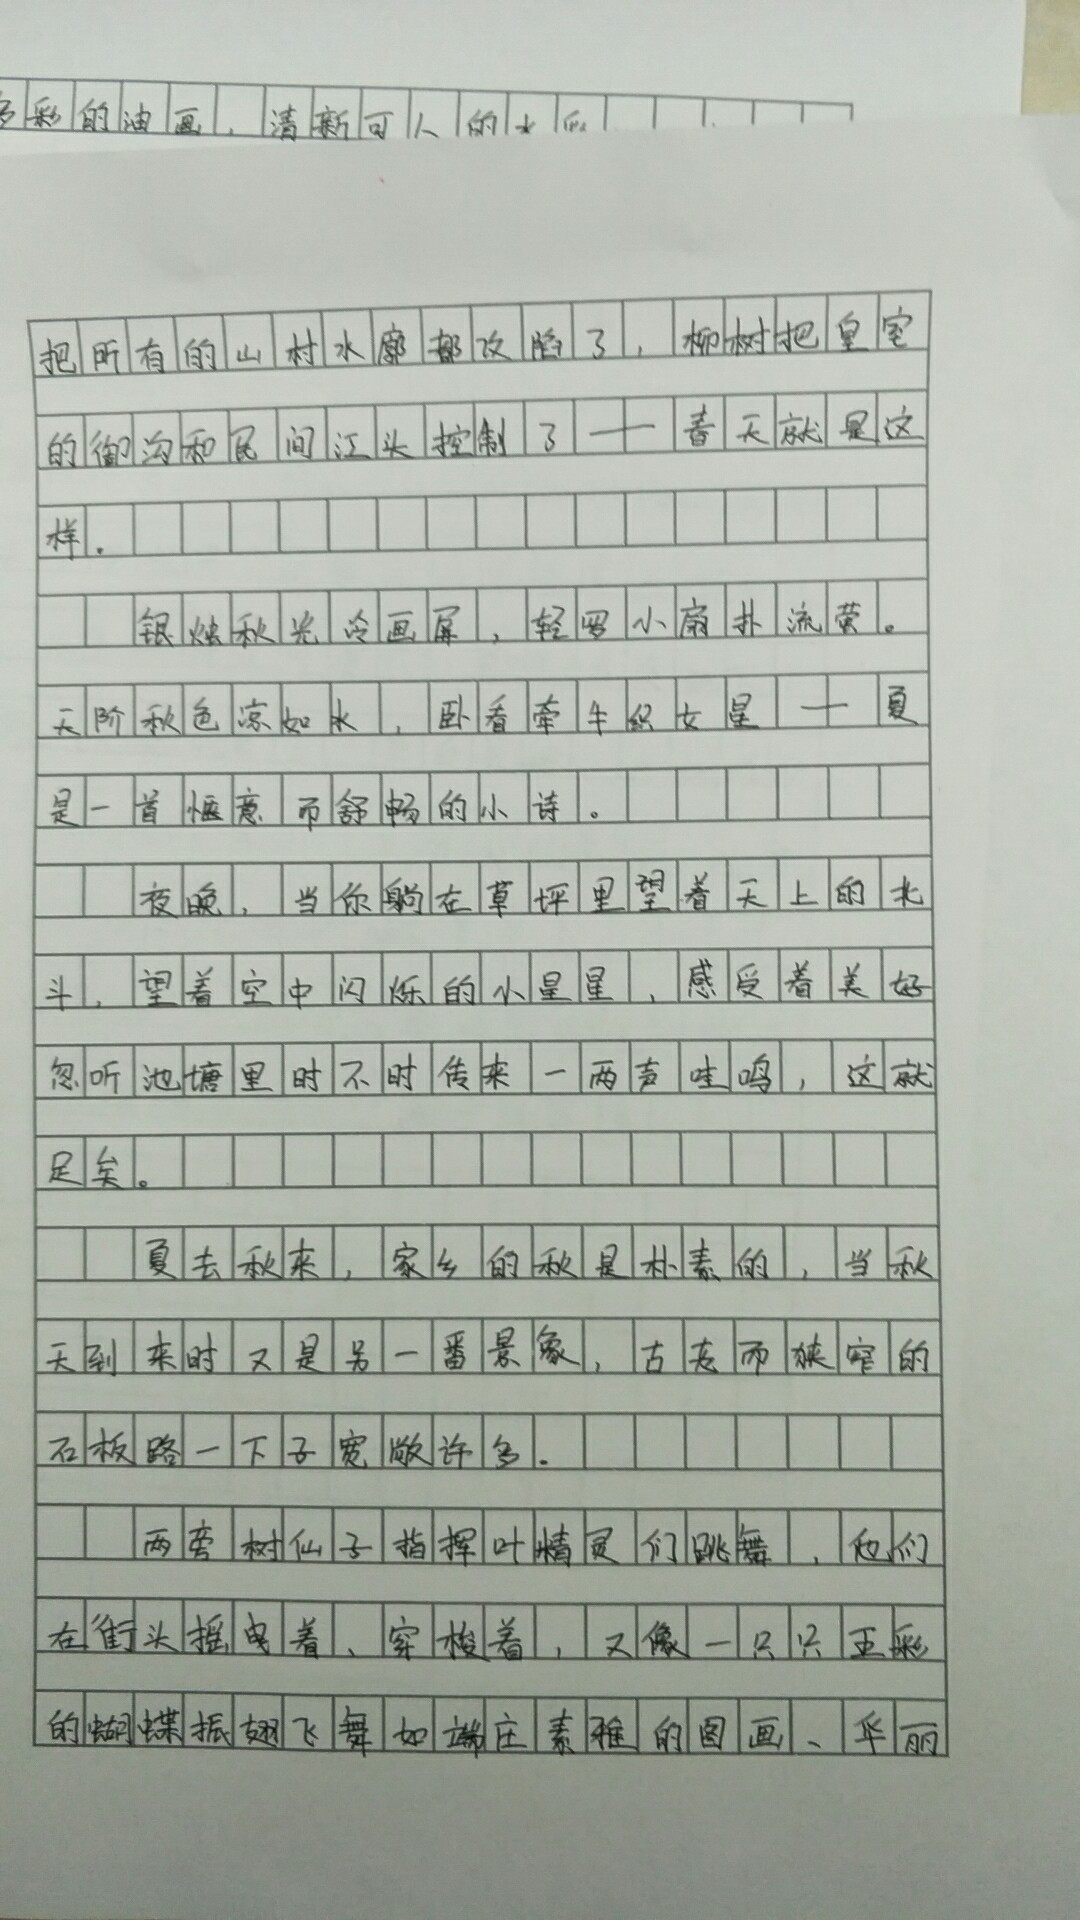 多彩的油画，清新可人的水彩
把所有的山村水廓都攻陷了，柳树把皇室
的御沟和民间江头控制了——春天就是这
样.
银烛秋光冷画屏，轻罗小扇扑流萤。
天阶秋色凉如水，卧看牵牛织女星——夏
是一首惬意而舒畅的小诗。
夜晚，当你躺在草坪里望着天上的北
斗，望着空中闪烁的小星星，感受着美好
忽听池塘里时不时传来一两声哇鸣，这就
足矣。
夏去秋来，家乡的秋是朴素的，当秋
天到来时又是另一番景象，古老而狭窄的
石板路一下子宽敞许多.
两旁树仙子指挥叶精灵们跳舞，他们
在街头摇曳着、穿梭着，又像一只只五彩
的蝴蝶振翅飞舞如端庄素雅的图画、华丽